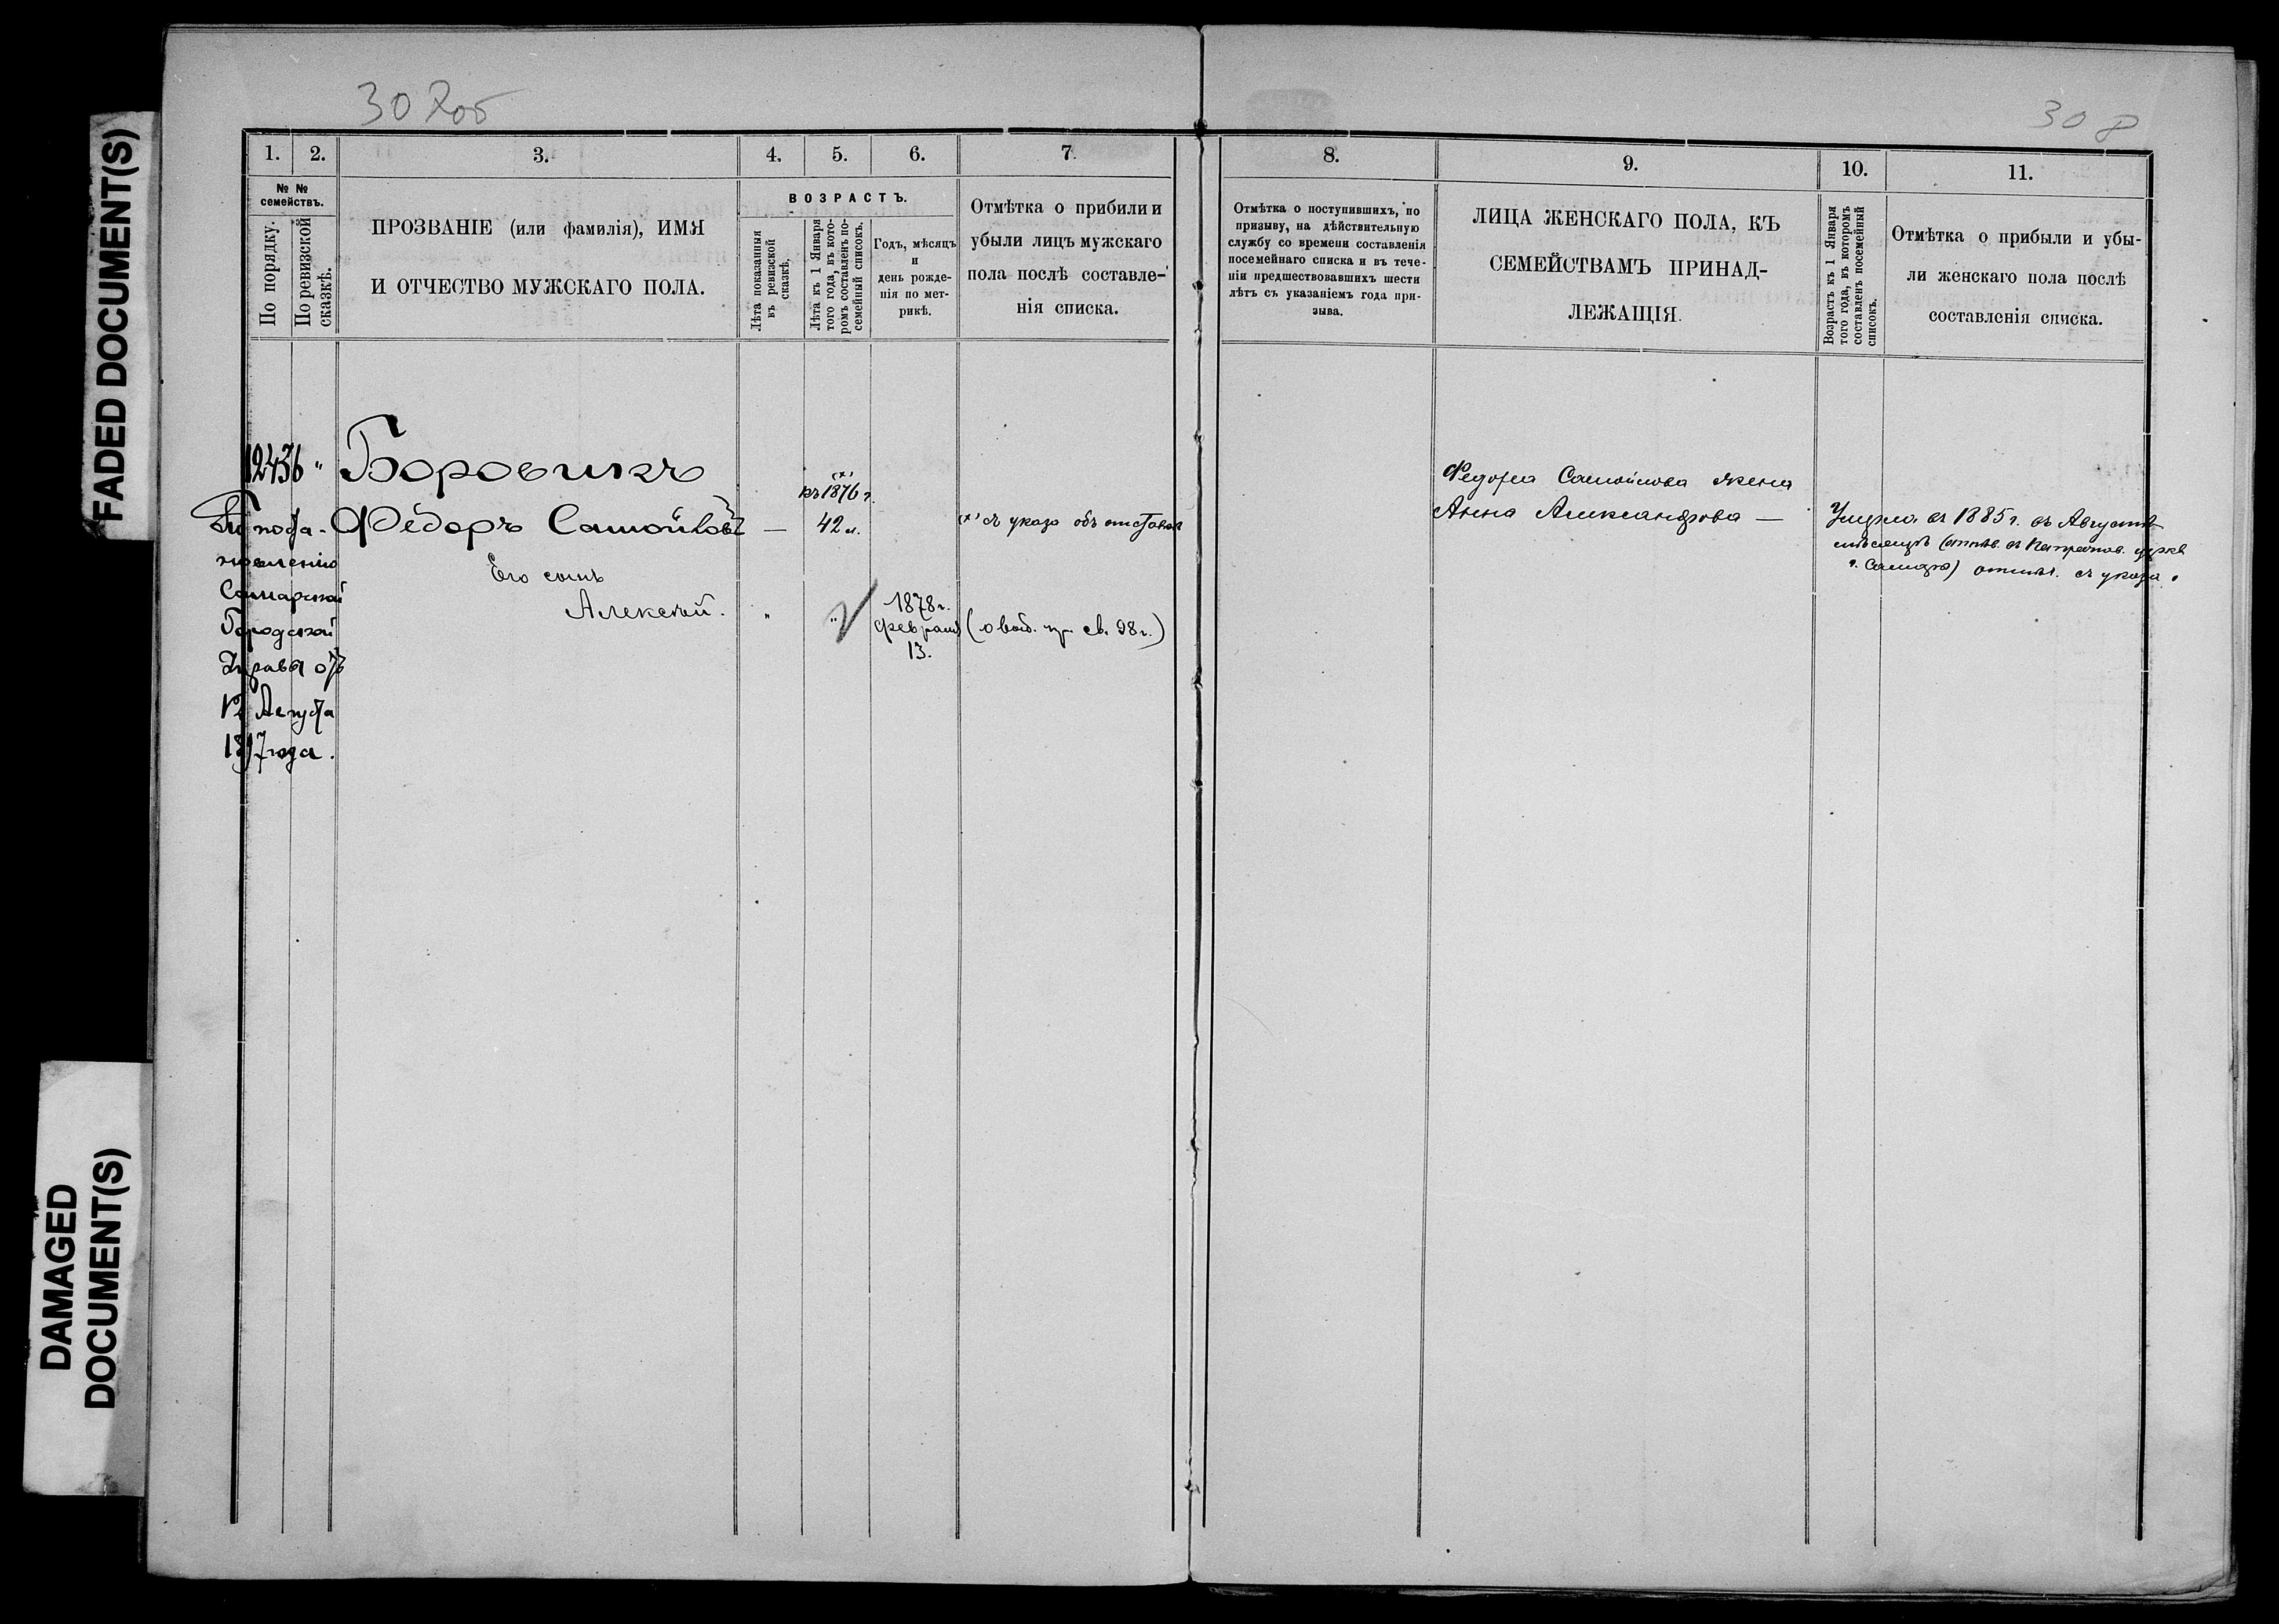 FADED DOCUMENT(S)
DAMAGED
DOCUMENT(S)
307об
308
1.
2.
3.
4.
5.
6.
7.
№ №
семействъ.
По порядку.
По ревизской
сказкѣ.
ПРОЗВАНІЕ (или фамилія), ИМЯ
И ОТЧЕСТВО МУЖСКАГО ПОЛА.
ВОЗРАСТЪ.
Лѣта показанныя
въ ревизской
сказкѣ.
Лѣта къ 1 Января
того года, въ кото-
ромъ составленъ по-
семейный списокъ.
Годъ, мѣсяцъ
и
день рожде-
нія по мет-
рикѣ.
Отмѣтка о прибыли и
убыли лицъ мужскаго
пола послѣ составле-
нія списка.
12436 „
По поста-
новленію
Самарской
Городской
Управы отъ
Августа
1897 года.
Боровикъ
Ѳедоръ Самойловъ
—
(х)
къ 1876 г.
42 л.
(х) съ указа объ отставкѣ
Его сынъ
Алексѣй.
„
„
1878 г.
Февраля
13.
св. 98 г.)
8.
9.
10.
11.
Отмѣтка о поступившихъ, по
призыву, на дѣйствительную
службу со времени составленія
посемейнаго списка и въ тече-
ніи предшествовавшихъ шести
лѣтъ съ указаніемъ года при-
зыва.
ЛИЦА ЖЕНСКАГО ПОЛА, КЪ
СЕМЕЙСТВАМЪ ПРИНАД-
ЛЕЖАЩІЯ.
Возрастъ къ 1 Января
того года, въ которомъ
составленъ посемейный
списокъ.
Отмѣтка о прибыли и убы-
ли женскаго пола послѣ
составленія списка.
Федора Самойлова жена
Анна Александрова —
Умерла въ 1885 г. въ Августѣ
мѣсяцѣ
г. Самары) отмѣт. съ указа.